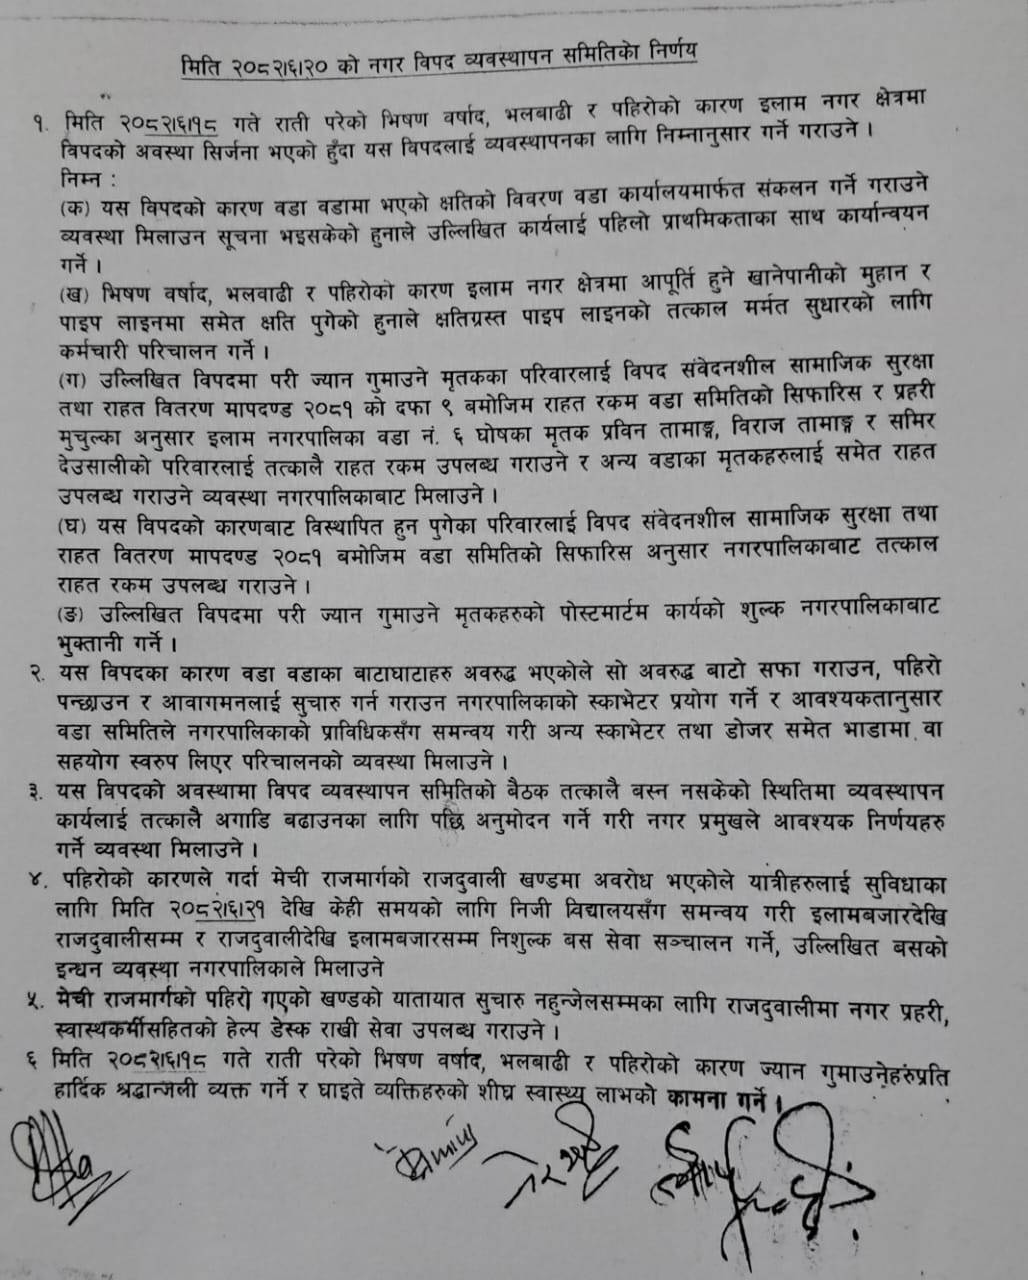 मिति २०८२।६।२० को नगर विपद व्यवस्थापन समितिको निर्णय
१. मिति २०८२।६।१८ गते राती परेको भिषण वर्षाद, भलबाढी र पहिरोको कारण इलाम नगर क्षेत्रमा
विपदको अवस्था सिर्जना भएको हुँदा यस विपदलाई व्यवस्थापनका लागि निम्नानुसार गर्ने गराउने ।
निम्न :
(क) यस विपदको कारण वडा वडामा भएको क्षतिको विवरण वडा कार्यालयमार्फत संकलन गर्ने गराउने
व्यवस्था मिलाउन सूचना भइसकेको हुनाले उल्लिखित कार्यलाई पहिलो प्राथमिकताका साथ कार्यान्वयन
गर्ने ।
(ख) भिषण वर्षाद, भलवाढी र पहिरोको कारण इलाम नगर क्षेत्रमा आपूर्ति हुने खानेपानीको मुहान र
पाइप लाइनमा समेत क्षति पुगेको हुनाले क्षतिग्रस्त पाइप लाइनको तत्काल मर्मत सुधारको लागि
कर्मचारी परिचालन गर्ने ।
(ग) उल्लिखित विपदमा परी ज्यान गुमाउने मृतकका परिवारलाई विपद संवेदनशील सामाजिक सुरक्षा
तथा राहत वितरण मापदण्ड २०८१ को दफा ९ बमोजिम राहत रकम वडा समितिको सिफारिस र प्रहरी
मुचुल्का अनुसार इलाम नगरपालिका वडा नं. ६ घोषका मृतक प्रविन तामाङ्ग, विराज तामाङ्ग र समिर
देउसालीको परिवारलाई तत्कालै राहत रकम उपलब्ध गराउने र अन्य वडाका मृतकहरुलाई समेत राहत
उपलब्ध गराउने व्यवस्था नगरपालिकाबाट मिलाउने ।
(घ) यस विपदको कारणबाट विस्थापित हुन पुगेका परिवारलाई विपद संवेदनशील सामाजिक सुरक्षा तथा
राहत वितरण मापदण्ड २०८१ बमोजिम वडा समितिको सिफारिस अनुसार नगरपालिकाबाट तत्काल
राहत रकम उपलब्ध गराउने ।
(ङ) उल्लिखित विपदमा परी ज्यान गुमाउने मृतकहरुको पोस्टमार्टम कार्यको शुल्क नगरपालिकाबाट
भुक्तानी गर्ने ।
२. यस विपदका कारण वडा वडाका बाटाघाटाहरु अवरुद्ध भएकोले सो अवरुद्ध बाटो सफा गराउन, पहिरो
पन्छाउन र आवागमनलाई सुचारु गर्न गराउन नगरपालिकाको स्काभेटर प्रयोग गर्ने र आवश्यकतानुसार
वडा समितिले नगरपालिकाको प्राविधिकसँग समन्वय गरी अन्य स्काभेटर तथा डोजर समेत भाडामा वा
सहयोग स्वरुप लिएर परिचालनको व्यवस्था मिलाउने ।
३. यस विपदको अवस्थामा विपद व्यवस्थापन समितिको बैठक तत्कालै बस्न नसकेको स्थितिमा व्यवस्थापन
कार्यलाई तत्कालै अगाडि बढाउनका लागि पछि अनुमोदन गर्ने गरी नगर प्रमुखले आवश्यक निर्णयहरु
गर्ने व्यवस्था मिलाउने ।
४. पहिरोको कारणले गर्दा मेची राजमार्गको राजदुवाली खण्डमा अवरोध भएकोले यात्रीहरुलाई सुविधाका
लागि मिति २०८२।६।२१ देखि केही समयको लागि निजी विद्यालयसँग समन्वय गरी इलामबजारदेखि
राजदुवालीसम्म र राजदुवालीदेखि इलामबजारसम्म निशुल्क बस सेवा सञ्चालन गर्ने, उल्लिखित बसको
इन्धन व्यवस्था नगरपालिकाले मिलाउने
५. मेची राजमार्गको पहिरो गएको खण्डको यातायात सुचारु नहुन्जेलसम्मका लागि राजदुवालीमा नगर प्रहरी,
स्वास्थकर्मीसहितको हेल्प डेस्क राखी सेवा उपलब्ध गराउने ।
६ मिति २०८२।६।१८ गते राती परेको भिषण वर्षाद, भलबाढी र पहिरोको कारण ज्यान गुमाउनेहरुप्रति
हार्दिक श्रद्धान्जली व्यक्त गर्ने र घाइते व्यक्तिहरुको शीघ्र स्वास्थ्य लाभको कामना गर्ने ।